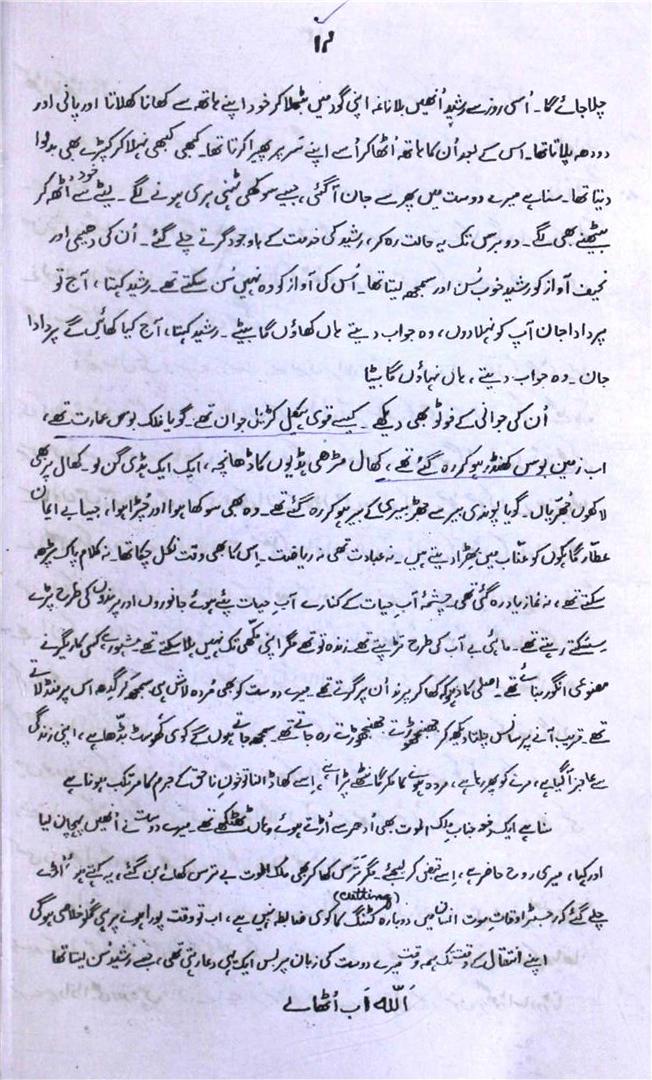 ۱۲
چلا جائے گا۔ اُسی روز سے رشید اُنھیں بلا ناغہ اپنی گود میں بٹھلا کر خود اپنے ہاتھ سے کھانا کھلاتا اور پانی اور
دودھ پلاتا تھا۔ اس کے بعد اُن کا ہاتھ اُٹھا کر اُسے اپنے سر پر پھیرا کرتا تھا۔ کبھی کبھی نہلا کر کپڑے بھی بدلوا
دیتا تھا۔ سنا ہے میرے دوست میں پھر سے جان آ گئی، جیسے سوکھی ٹہنی ہری ہونے لگے۔ لیٹے سے خود اُٹھ کر
بیٹھنے بھی لگے۔ دو برس تک یہ حالت رہ کر، رشید کی خدمت کے باوجود گرتے چلے گئے۔ اُن کی دھیمی اور
نحیف آواز کو رشید خوب سُن اور سمجھ لیتا تھا۔ اُس کی آواز کو وہ نہیں سُن سکتے تھے۔ رشید کہتا، آج تو
پردادا جان آپ کو نہلا دوں، وہ جواب دیتے ہاں کھاؤں گا بیٹے۔ رشید کہتا، آج کیا کھائیں گے پردادا
جان۔ وہ جواب دیتے، ہاں نہاؤں گا بیٹا
اُن کی جوانی کے فوٹو بھی دیکھے۔ کیسے قوی ہیکل کڑیل جوان تھے۔ گویا فلک بوس عمارت تھے،
اب زمین بوس کھنڈر ہو کر رہ گئے تھے، کھال مڑھی ہڈیوں کا ڈھانچہ، ایک ایک ہڈی گن لو۔ کھال پر بھی
لاکھوں جھریاں۔ گویا پیوندی بیر سے جھڑ بیری کے بیر ہو کر رہ گئے تھے۔ وہ بھی سوکھا ہوا اور چُڑا ہوا، جیسا بے ایمان
عطّار گاہکوں کو عنّاب میں بھڑا دیتے ہیں۔ نہ عبادت تھی نہ ریاضت۔ اس کا بھی وقت نکل چکا تھا۔ نہ کلام پاک پڑھ
سکتے تھے، نہ نماز یاد رہ گئی تھی۔ چشمۂ آبِ حیات کے کنارے آبِ حیات پئے ہوئے جانوروں اور پرندوں کی طرح پڑے
سسکتے رہتے تھے۔ ماہئی بے آب کی طرح تڑپتے تھے۔ زندہ تو تھے مگر اپنی مکھی تک نہیں ہلا سکتے تھے۔ مشہور ہے کسی کاریگر نے
مصنوعی انگور بنائے تھے۔ اصلی کا دھوکہ کھا کر پرند اُن پر گرتے تھے۔ میرے دوست کو بھی مُردہ لاش ہی سمجھ کر گِدھ اس پر منڈلاتے
تھے۔ قریب آنے پر سانس چلتا دیکھ کر جھنجھوڑتے جھنجھوڑتے رہ جاتے تھے۔ سمجھ جاتے ہوں گے کوئی کھوسٹ بڈّھا ہے، اپنی زندگی
سے عاجز آ گیا ہے، مرنے کو پھر رہا ہے، مردہ ہونے کا مکر گانٹھے پڑا ہے، اسے کھا ڈالنا تو خونِ ناحق کے جرم کا مرتکب ہونا ہے
سنا ہے ایک دفعہ جناب ملک الموت بھی اُدھر سے اُڑتے ہوئے وہاں ٹھٹکے تھے۔ میرے دوست نے اُنھیں پہچان لیا
اور کہا، میری روح حاضر ہے، اِسے قبض کر لیجئے۔ مگر ترس کھا کر بھی ملک الموت بے ترس کھائے بن گئے، یہ کہتے ہوئے اُڑے
چلے گئے کہ رجسٹر اوقاتِ موت انسان میں دوبارہ کٹنگ (cutting) کا کوئی ضابطہ نہیں ہے، اب تو وقت پورا ہونے پر ہی گلو خلاصی ہو گی
اپنے انتقال کے وقت تک ہمہ وقت میرے دوست کی زبان پر بس ایک یہی دعا رہتی تھی، جسے رشید سُن لیتا تھا
اَللہ اَب اُٹھا لے